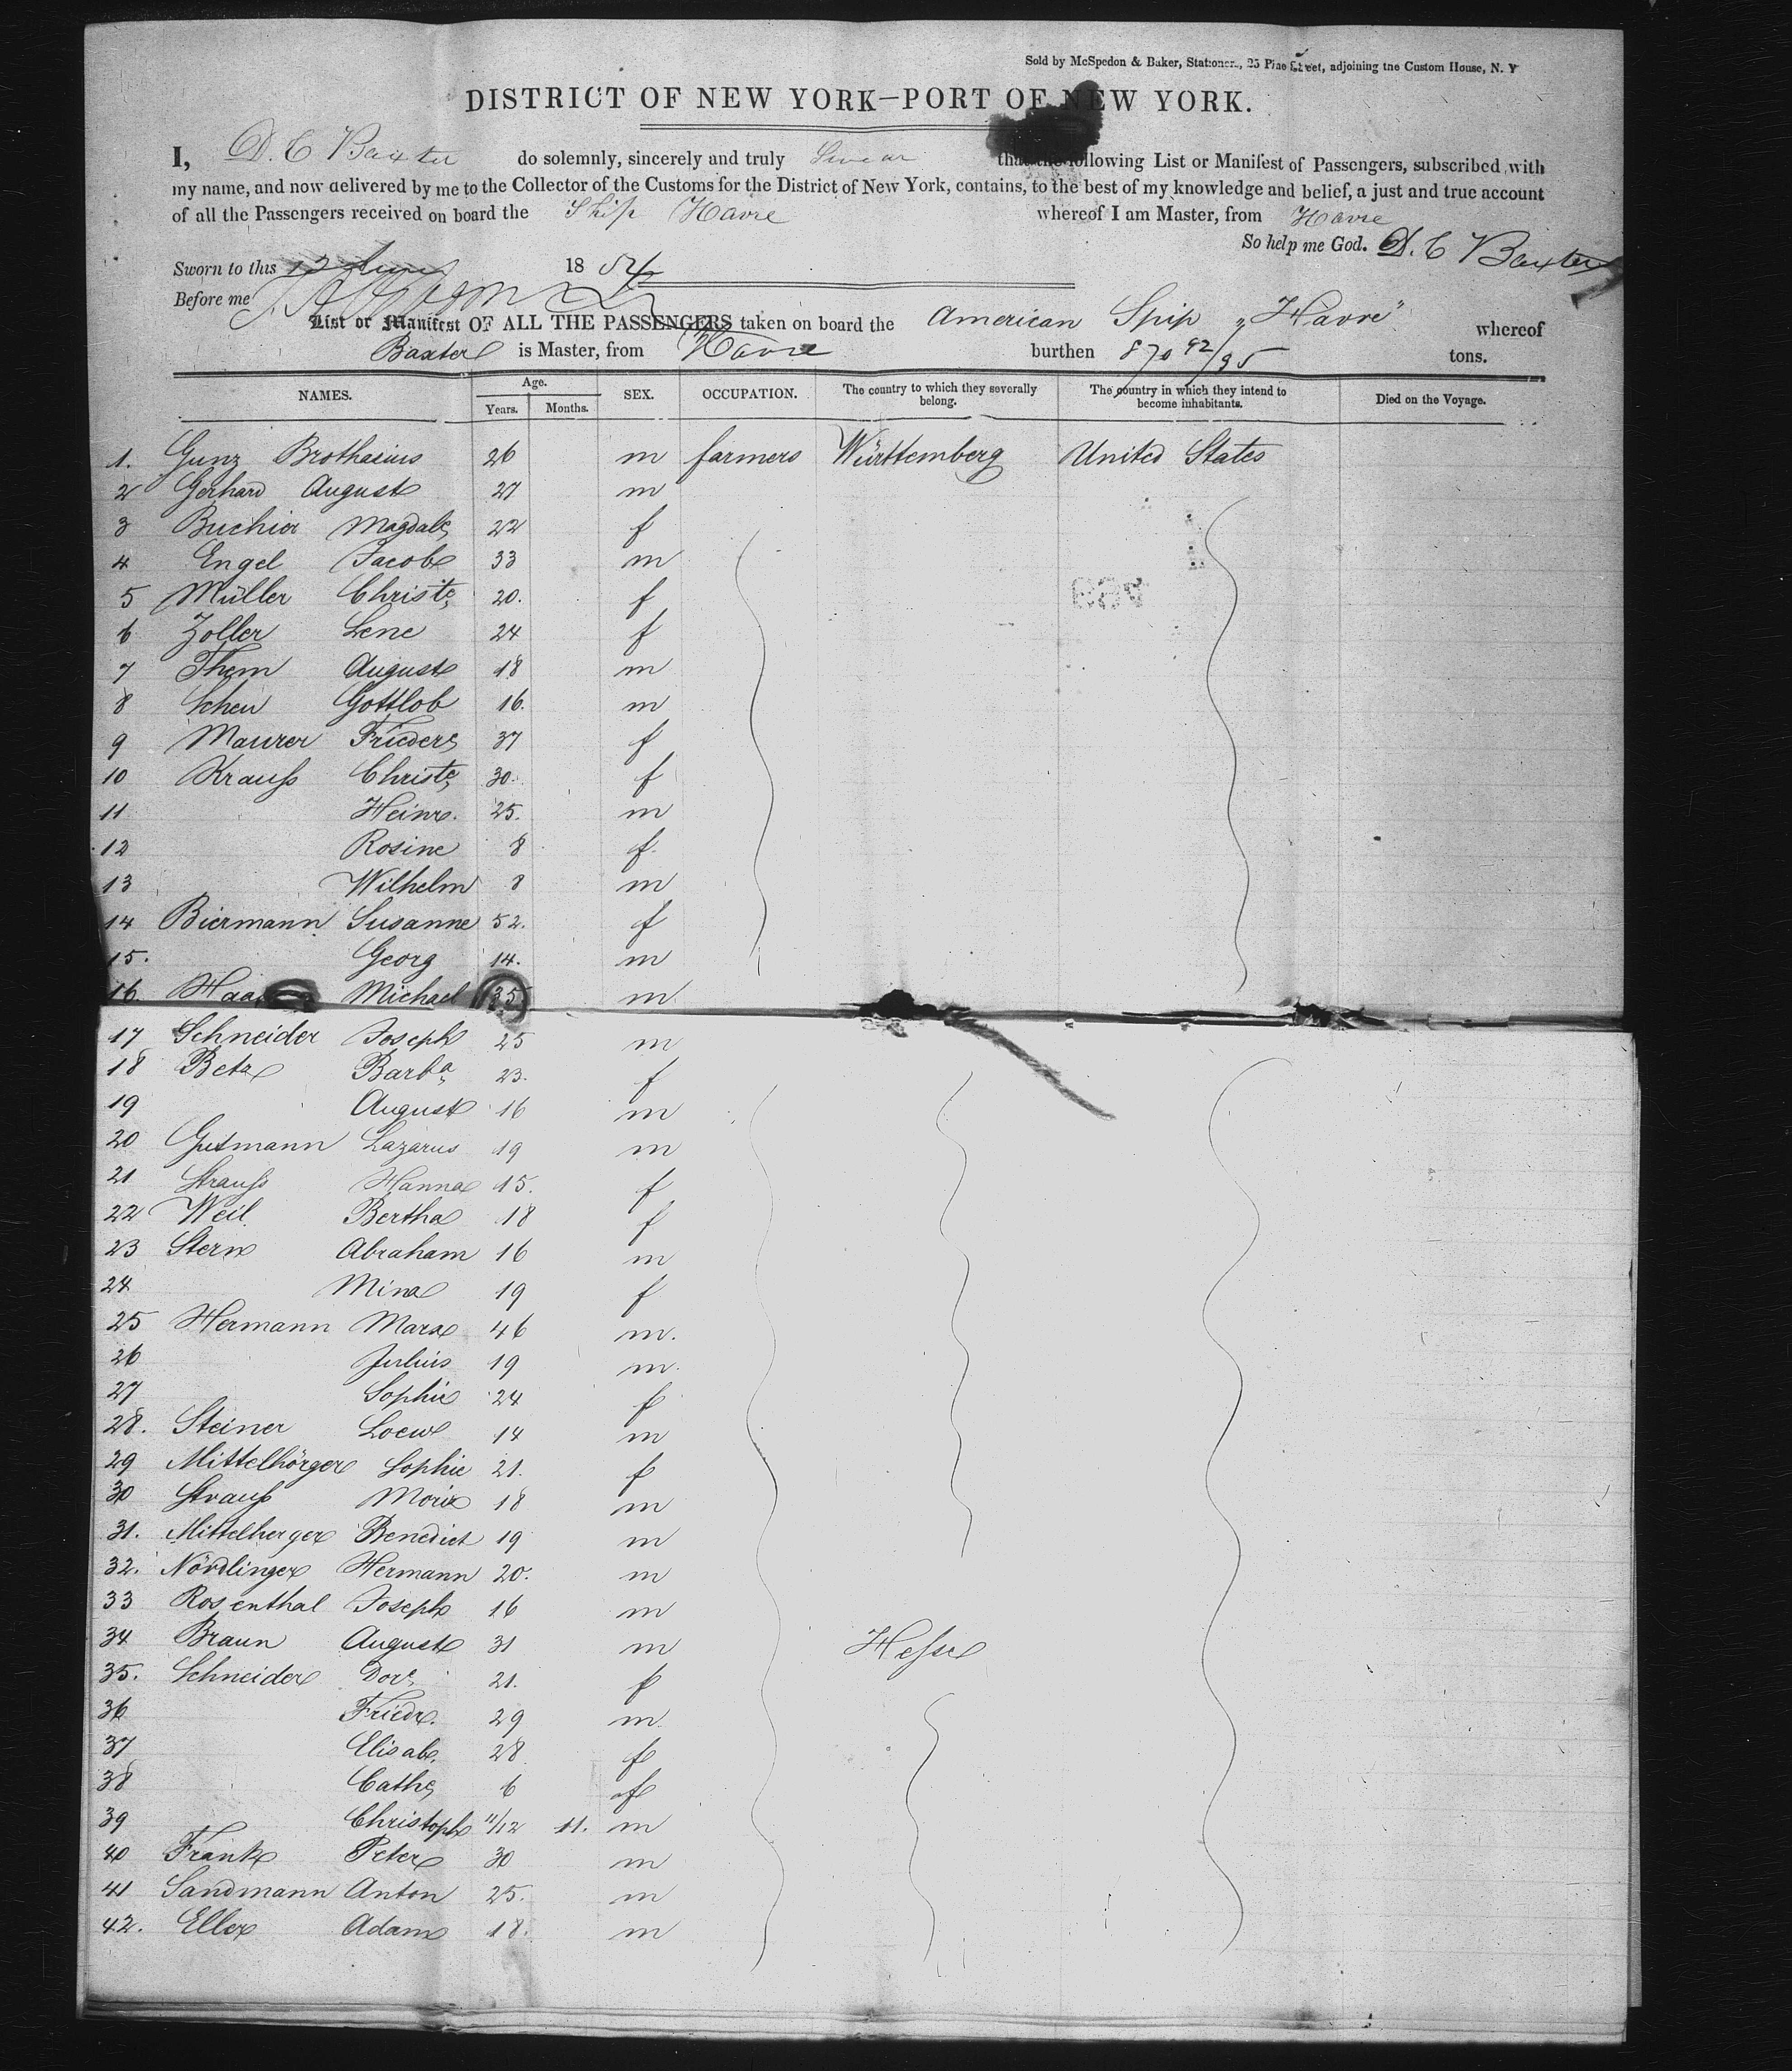 Sold by McSpedon & Baker, Stationers, 25 Pine Street, adjoining the Custom House, N. Y
DISTRICT OF NEW YORK—PORT OF NEW YORK.
I, D. C Baxter do solemnly, sincerely and truly Swear that the following List or Manifest of Passengers, subscribed with
my name, and now delivered by me to the Collector of the Customs for the District of New York, contains, to the best of my knowledge and belief, a just and true account
of all the Passengers received on board the Ship Havre whereof I am Master, from Havre
So help me God. D. C Baxter
Sworn to this 12 June 1854
Before me
List or Manifest OF ALL THE PASSENGERS taken on board the American Ship „Havre" whereof
Baxter is Master, from Havre burthen 870 92/95 tons.
NAMES. Age. Years. Months. SEX. OCCUPATION. The country to which they severally belong. The country in which they intend to become inhabitants. Died on the Voyage.
1. Gunz Brothasius 26 m farmers Württemberg United States
2 Gerhard August 27 m
3 Buchier Magdale 22 f
4 Engel Jacob 33 m
5 Müller Christe 20. f
6 Zoller Lene 24 f
7 Them August 18 m
8 Scheu Gottlob 16. m
9 Maurer Friedere 37 f
10 Krauß Christe 30. f
11 Heinr. 25. m
12 Rosine 8 f
13 Wilhelm 8 m
14 Biermann Susanne 52. f
15. Georg 14. m
16 Michael 35 m
17 Schneider Joseph 25 m
18 Betz Barba 23. f
19 August 16 m
20 Gutmann Lazarus 19 m
21 Strauß Hanna 15. f
22 Weil Bertha 18 f
23 Stern Abraham 16 m
24 Mina 19 f
25 Hermann Marx 46 m.
26 Julius 19 m.
27 Sophie 24 f
28. Steiner Loew 14 m
29 Mittelhörger Sophie 21. f
30 Strauß Moriz 18 m
31. Mittelherger Benedict 19 m
32. Nördlinger Hermann 20. m
33 Rosenthal Joseph 16 m
34 Braun August 31 m Hesse
35. Schneider Dore 21. f
36 Friedr. 29 m.
37 Elisab. 28 f
38 Cathe 6 f
39 Christoph 11/12 11. m
40 Frank Peter 30 m
41 Sandmann Anton 25. m
42. Eller Adam 18. m